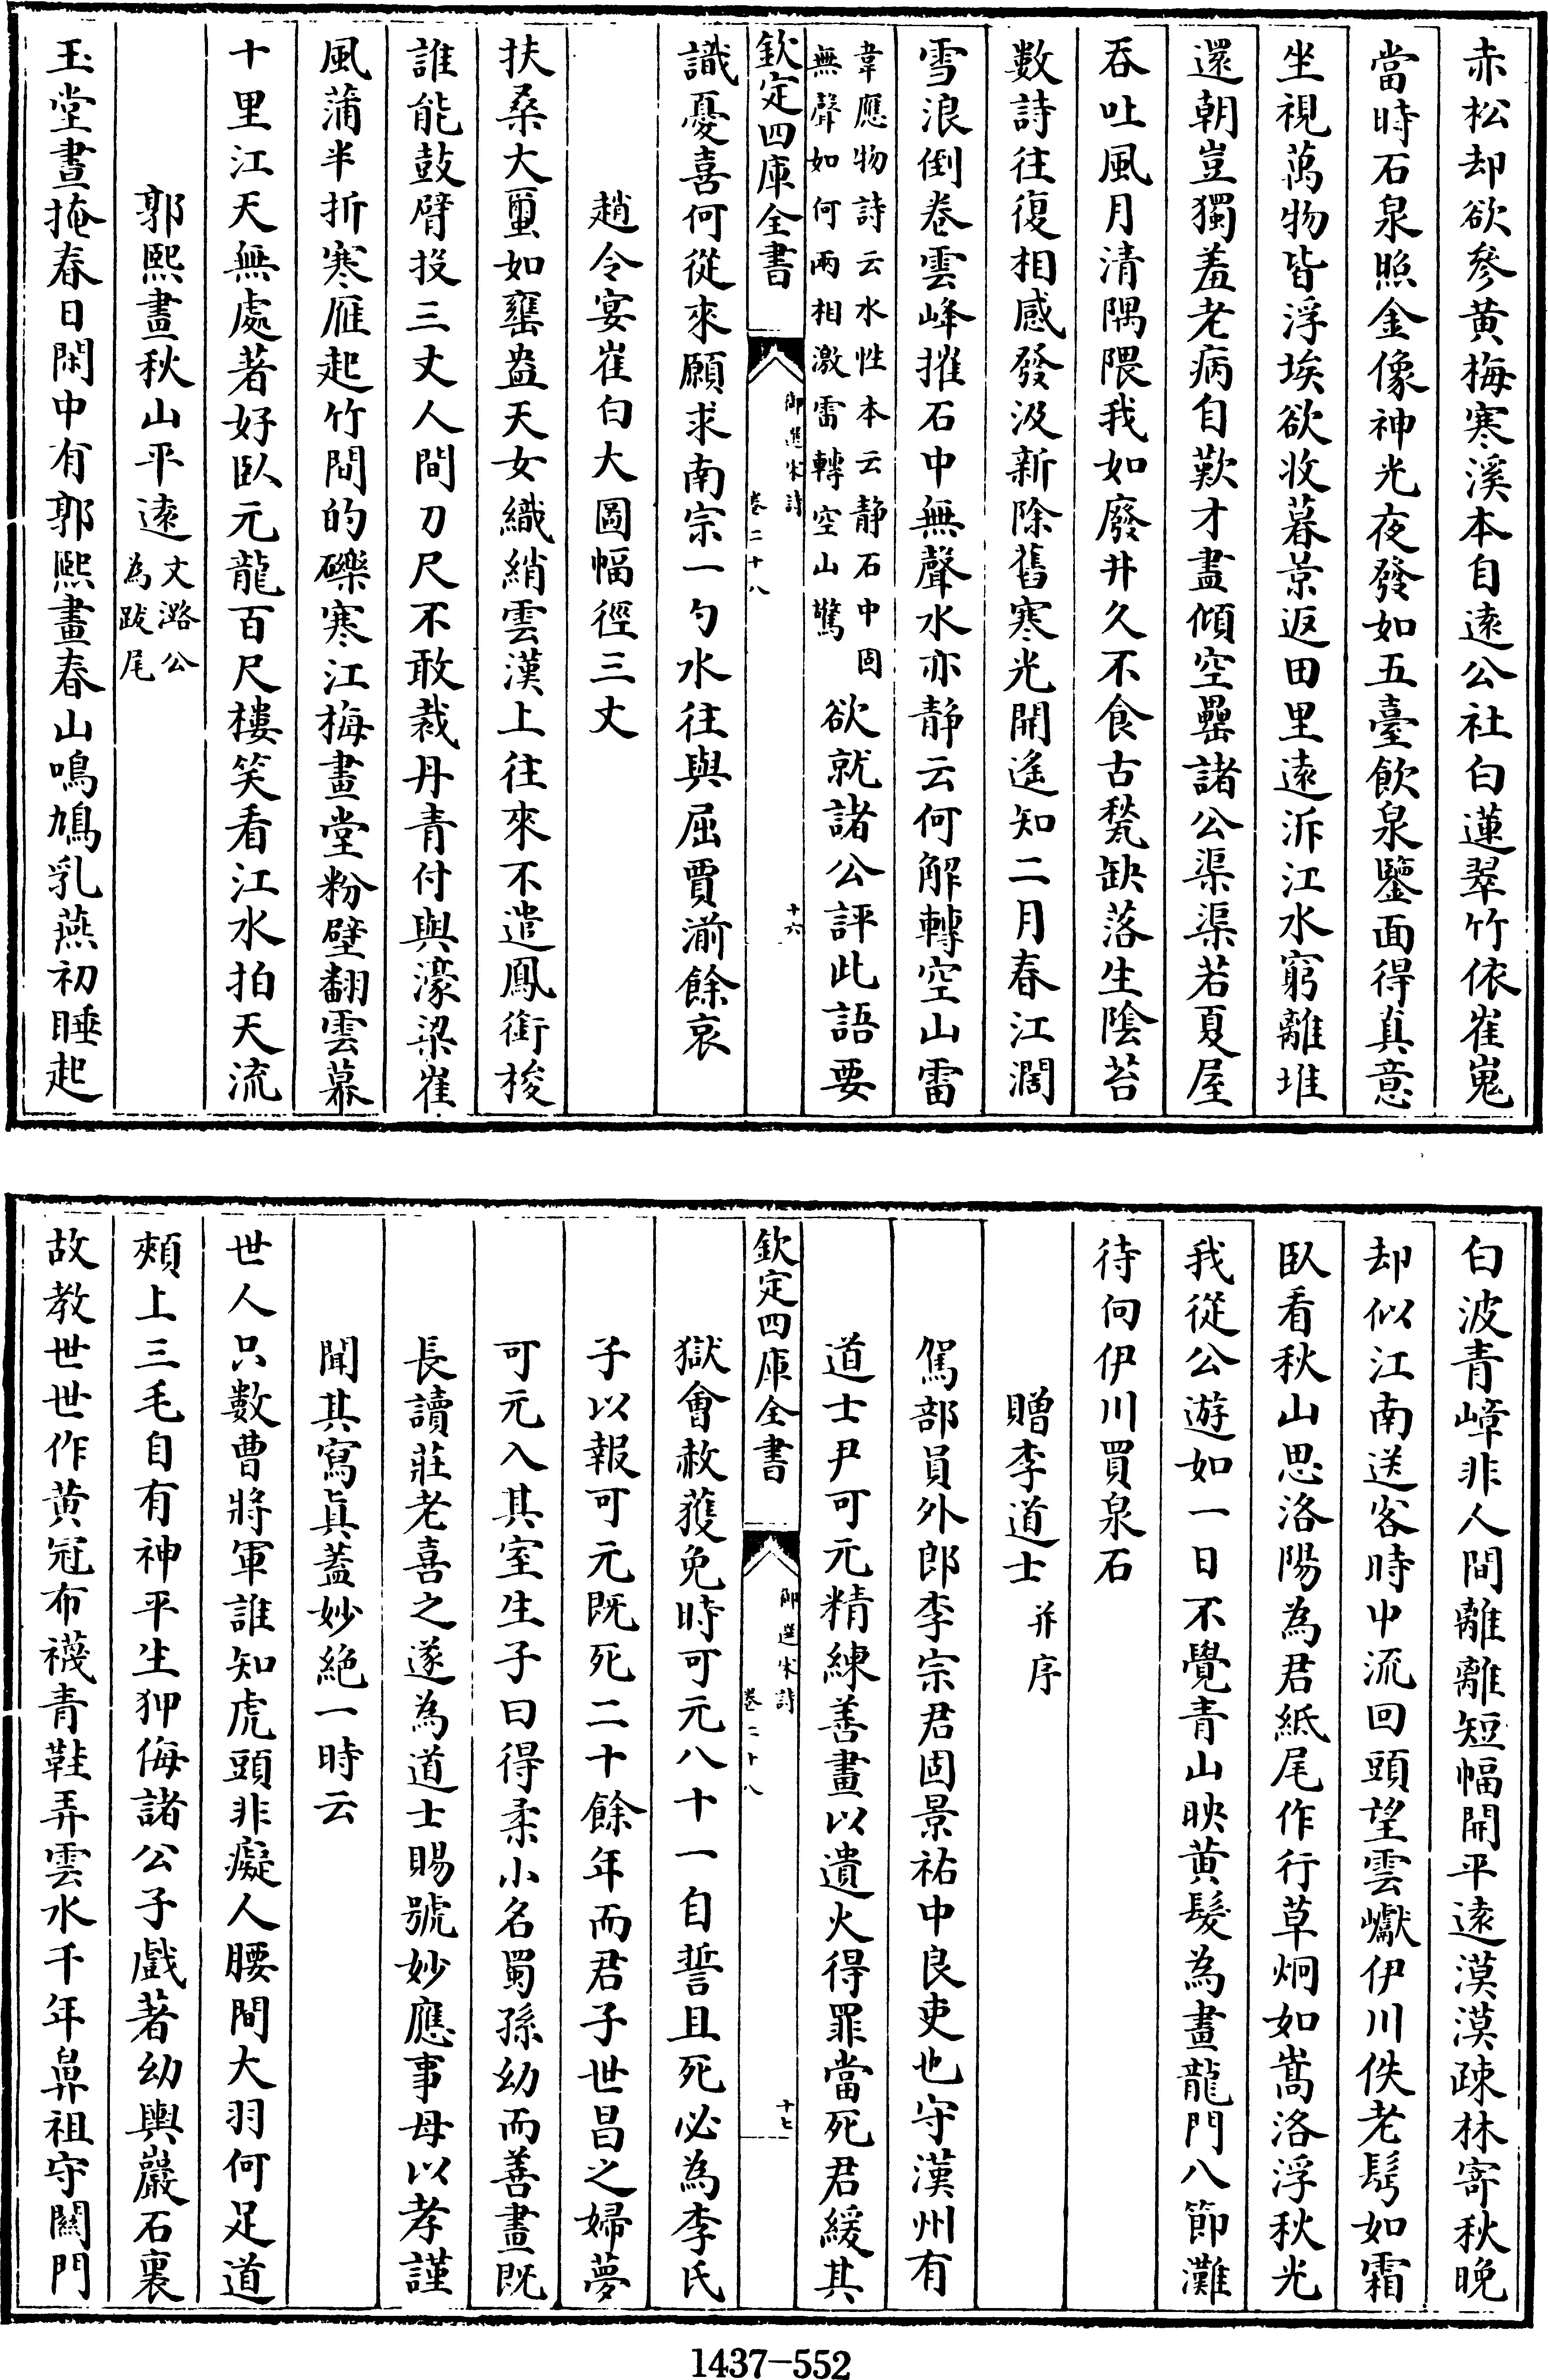 赤松却欲參黄梅寒溪本自逺公社白蓮翠竹依崔嵬
當時石泉照金像神光夜發如五臺飲泉鑒面得真意
坐視萬物皆浮埃欲收暮景返田里逺泝江水窮離堆
還朝豈獨羞老病自歎才盡傾空罍諸公渠渠若夏屋
吞吐風月清隅隈我如廢井久不食古甃缺落生陰苔
數詩往復相感發汲新除舊寒光開遥知二月春江濶
雪浪倒卷雲峰摧石中無聲水亦静云何解轉空山雷
韋應物詩云水性本云静石中固
無聲如何兩相激雷轉空山驚
欲就諸公評此語要
欽定四庫全書
御選宋詩
卷二十八
十六
識憂喜何從來願求南宗一勺水往與屈賈湔餘哀
趙令宴崔白大圖幅徑三丈
扶桑大璽如甕盎天女織綃雲漢上往來不遣鳳銜梭
誰能鼓臂投三丈人間刀尺不敢裁丹青付與濠梁崔
風蒲半折寒雁起竹間的礫寒江梅畫堂粉壁翻雲幕
十里江天無處著好臥元龍百尺樓笑看江水拍天流
郭熙畫秋山平逺
文潞公
為跋尾
玉堂晝掩春日閑中有郭熙畫春山鳴鳩乳燕初睡起
白波青嶂非人間離離短幅開平逺漠漠疎林寄秋晚
却似江南送客時中流回頭望雲巘伊川佚老鬂如霜
臥看秋山思洛陽為君紙尾作行草炯如嵩洛浮秋光
我從公遊如一日不覺青山映黄髪為畫龍門八節灘
待向伊川買泉石
贈李道士
并序
駕部員外郎李宗君固景祐中良吏也守漢州有
道士尹可元精練善畫以遺火得罪當死君緩其
欽定四庫全書
御選宋詩
卷二十八
十七
獄會赦獲免時可元八十一自誓且死必為李氏
子以報可元既死二十餘年而君子世昌之婦夢
可元入其室生子曰得柔小名蜀孫幼而善畫既
長讀莊老喜之遂為道士賜號妙應事母以孝謹
聞其寫真蓋妙絶一時云
世人只數曹將軍誰知虎頭非癡人腰間大羽何足道
頰上三毛自有神平生狎侮諸公子戲著幼輿巖石裏
故教世世作黄冠布襪青鞋弄雲水千年鼻祖守關門
1437-552